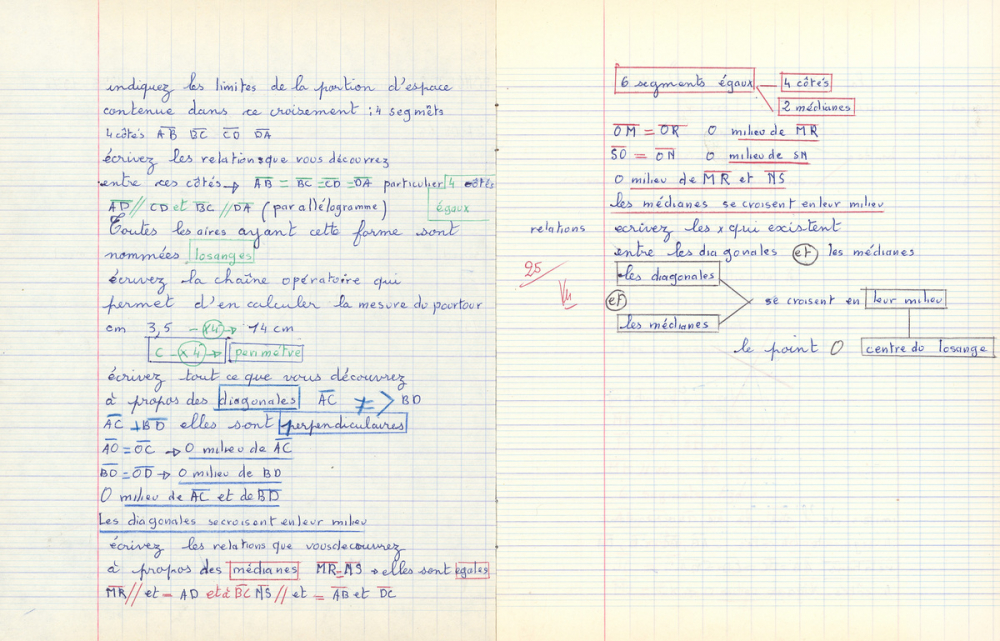 indiquez les limites de la portion d'espace
contenue dans ce croisement : 4 segmêts
4 côtés AB BC CD DA
écrivez les relations que vous découvrez
entre ces côtés → AB = BC = CD = DA particulier 4 côtés
égaux
AD // CD et BC // DA (parallélogramme)
Toutes les aires ayant cette forme sont
nommées losanges
écrivez la chaîne opératoire qui
permet d'en calculer la mesure du pourtour
cm 3,5 - x4 → 14 cm
c - x4 → périmètre
écrivez tout ce que vous découvrez
à propos des diagonales AC ≠ > BD
AC ⊥ BD elles sont perpendiculaires
AO = OC → O milieu de AC
BO = OD → O milieu de BD
O milieu de AC et de BD
Les diagonales se croisent en leur milieu
écrivez les relations que vous decouvrez
à propos des médianes MR = NS → elles sont égales
MR // et = AD et à BC NS // et = AB et DC
6 segments égaux 4 côtés
2 médianes
OM = OR O milieu de MR
SO = ON O milieu de SN
O milieu de MR et NS
les médianes se croisent en leur milieu
relations ecrivez les x qui existent
entre les diagonales et les médianes
25
Vu
les diagonales
et se croisent en leur milieu
les médianes
le point O centre du losange